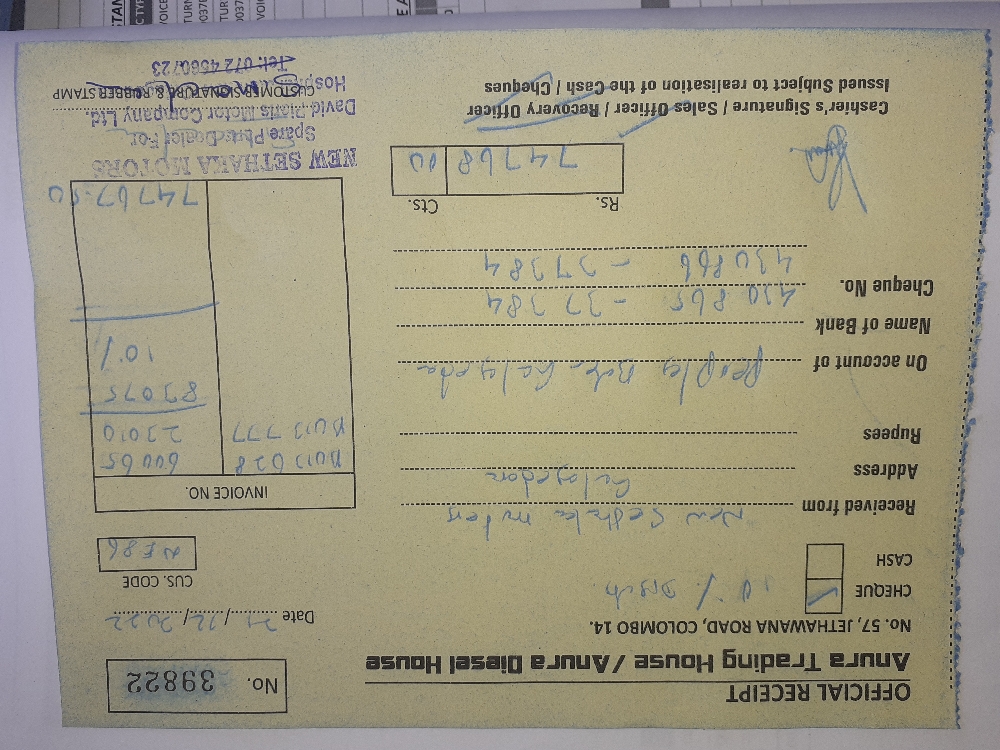 OFFICIAL RECEIPT
Anura Trading House / Anura Diesel House
No. 57, JETHAWANA ROAD, COLOMBO 14.
No. 39822
Date 21/12/2022
CHEQUE 10%
CASH
CUS. CODE
NE86
Received from New Sethaka motors
Address
Rupees
On account of
Name of Bank 430865 - 37384
Cheque No. 430866 - 37384
INVOICE NO.
60065
23010
83075
10%
74767.50
Rs. Cts.
74768 00
Cashier's Signature / Sales Officer / Recovery Officer
Issued Subject to realisation of the Cash / Cheques
NEW SETHAKA MOTORS
Spare Parts Dealer For
David Pieris Motor Company Ltd.
CUSTOMER SIGNATURE & RUBBER STAMP
Tel: 072 4560723